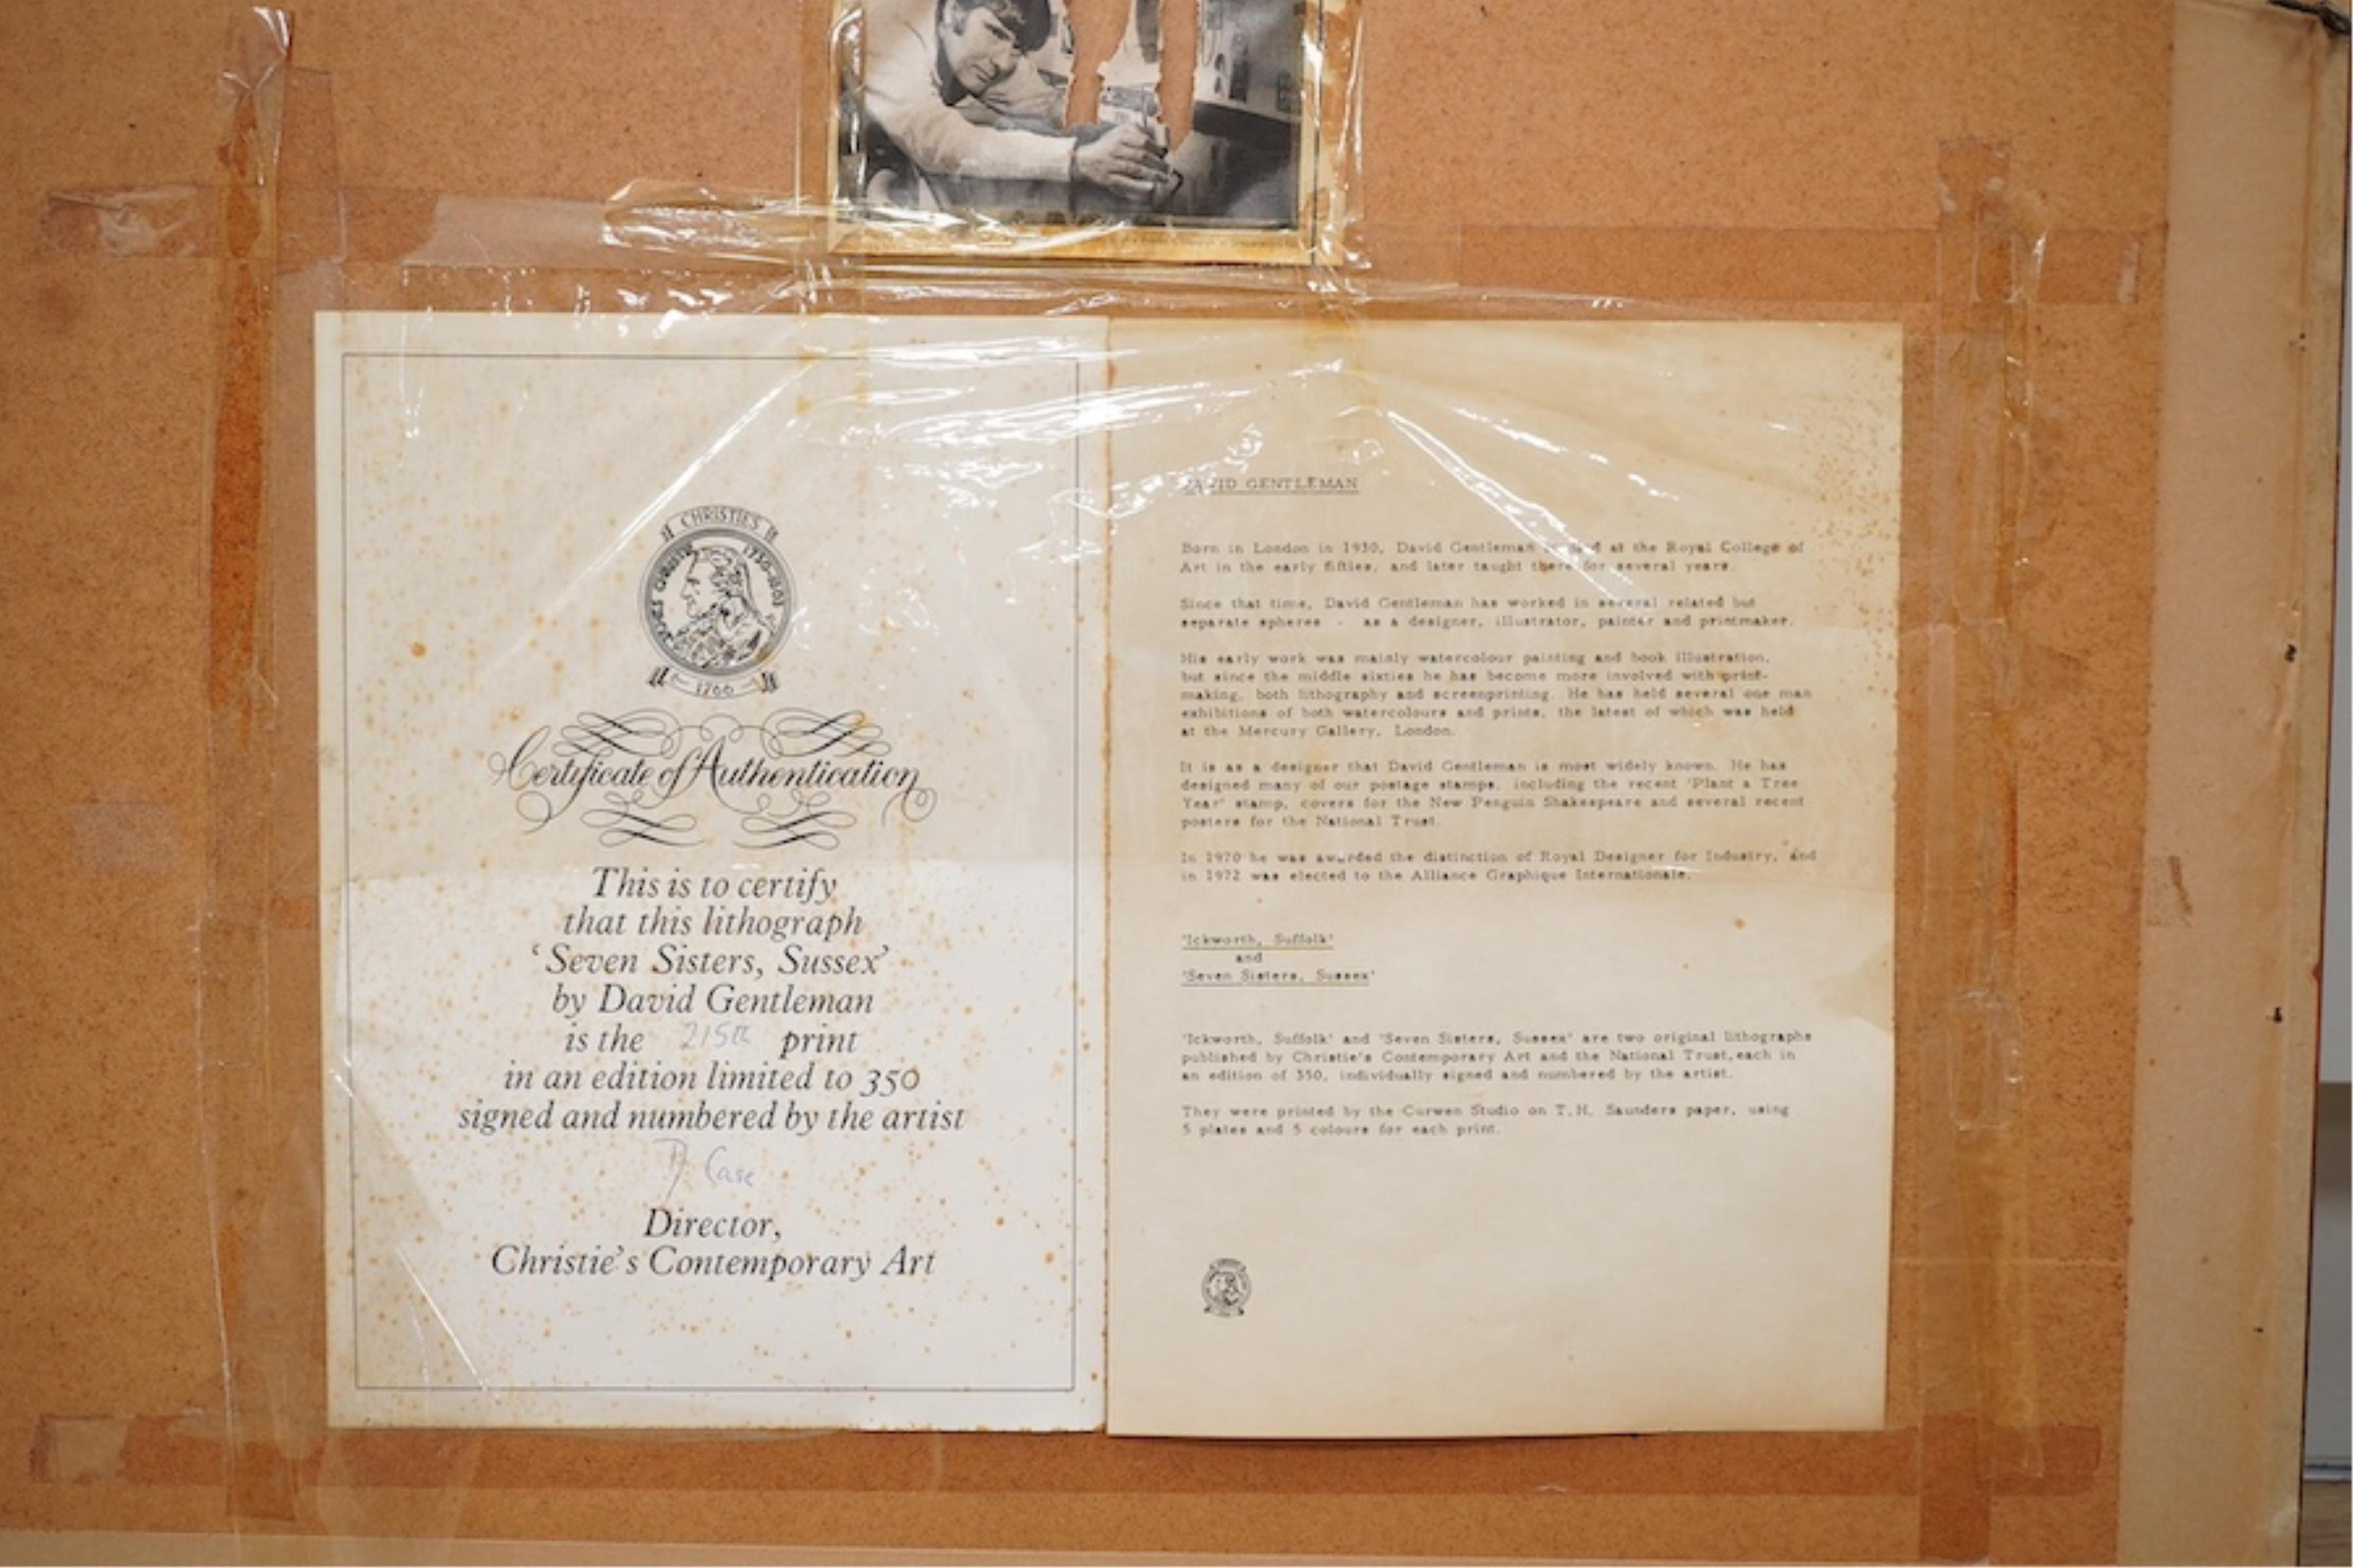 CHRISTIES
JAMES CHRISTIE 1730-1803
1766
Certificate of Authentication
This is to certify
that this lithograph
‘Seven Sisters, Sussex’
by David Gentleman
is the 215th print
in an edition limited to 350
signed and numbered by the artist
Case
Director,
Christie's Contemporary Art
DAVID GENTLEMAN
Born in London in 1930, David Gentleman at the Royal College of
Art in the early fifties, and later taught there for several years.
Since that time, David Gentleman has worked in several related but
separate spheres - as a designer, illustrator, painter and printmaker.
His early work was mainly watercolour painting and book illustration,
but since the middle sixties he has become more involved with print-
making, both lithography and screenprinting. He has held several one man
exhibitions of both watercolours and prints, the latest of which was held
at the Mercury Gallery, London.
It is as a designer that David Gentleman is most widely known. He has
designed many of our postage stamps, including the recent 'Plant a Tree
Year' stamp, covers for the New Penguin Shakespeare and several recent
posters for the National Trust.
In 1970 he was awarded the distinction of Royal Designer for Industry, and
in 1972 was elected to the Alliance Graphique Internationale.
'Ickworth, Suffolk'
and
'Seven Sisters, Sussex'
'Ickworth, Suffolk' and 'Seven Sisters, Sussex' are two original lithographs
published by Christie's Contemporary Art and the National Trust, each in
an edition of 350, individually signed and numbered by the artist.
They were printed by the Curwen Studio on T.H. Saunders paper, using
5 plates and 5 colours for each print.